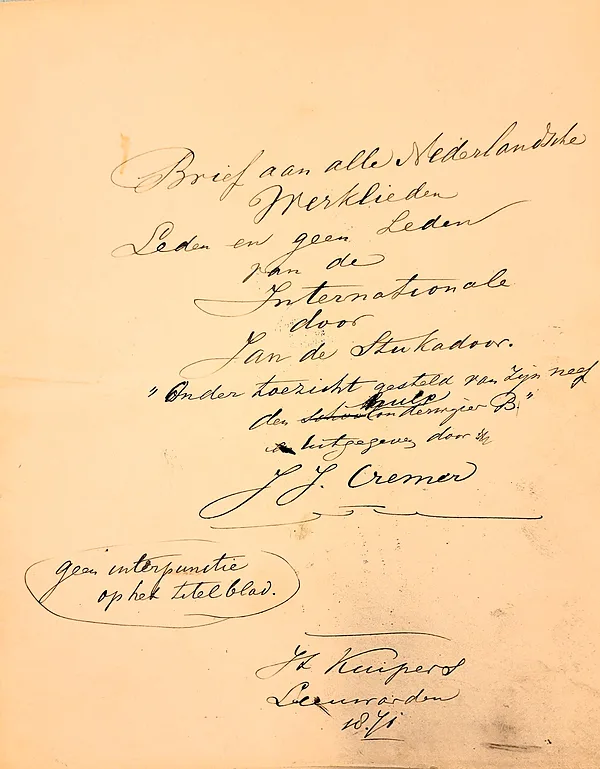 Brief aan alle Nederlandsche
Werklieden
Leden en geen Leden
van de
Internationale
door
Jan de Stukadoor.
"Onder toezicht gesteld van zijn neef
den hulponderwijzer B."
Uitgegeven door
J J. Cremer
geen interpunctie
op het titelblad.
Kuipers
Leeuwarden
1871